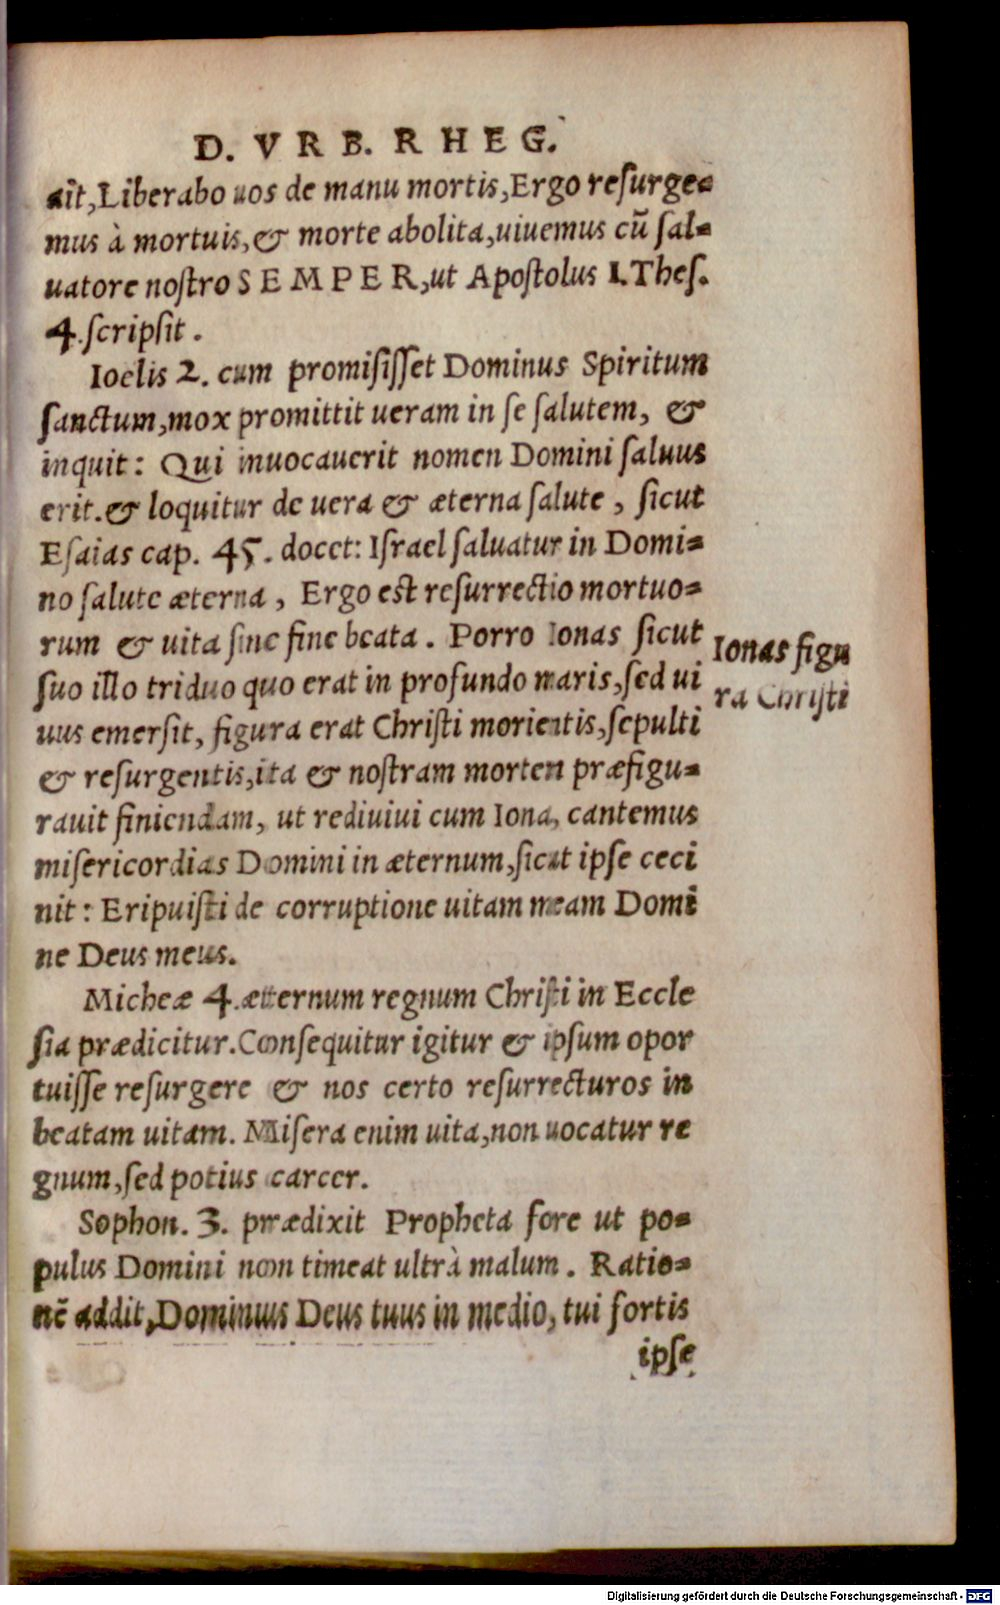 D. V R B. R H E G.
ait, Liberabo uos de manu mortis, Ergo resurge=
mus à mortuis, & morte abolita, uiuemus cū sal=
uatore nostro S E M P E R, ut Apostolus 1. Thes.
4. scripsit.
Ioelis 2. cum promisisset Dominus Spiritum
sanctum, mox promittit ueram in se salutem, &
inquit: Qui inuocauerit nomen Domini saluus
erit. & loquitur de uera & æterna salute, sicut
Esaias cap. 45. docet: Israel saluatur in Domi=
no salute æterna, Ergo est resurrectio mortuo=
rum & uita sine fine beata. Porro Ionas sicut
suo illo triduo quo erat in profundo maris, sed ui
uus emersit, figura erat Christi morientis, sepulti
& resurgentis, ita & nostram mortem præfigu=
rauit finiendam, ut rediuiui cum Iona, cantemus
misericordias Domini in æternum, sicut ipse ceci
nit: Eripuisti de corruptione uitam meam Domi
ne Deus meus.
Ionas figu
ra Christi
Micheæ 4. æternum regnum Christi in Eccle
sia prædicitur. Consequitur igitur & ipsum opor
tuisse resurgere & nos certo resurrecturos in
beatam uitam. Misera enim uita, non uocatur re
gnum, sed potius carcer.
Sophon. 3. prædixit Propheta fore ut po=
pulus Domini non timeat ultrà malum. Ratio=
nē addit, Dominus Deus tuus in medio, tui fortis
ipse
Digitalisierung gefördert durch die Deutsche Forschungsgemeinschaft - DFG